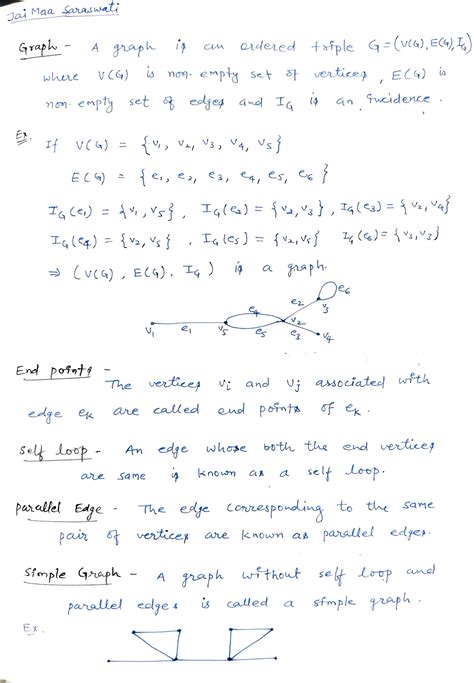 Jai Maa Saraswati
Graph - A graph is an ordered triple G = (V(G), E(G), I_G)
where V(G) is non-empty set of vertices, E(G) is
non-empty set of edges and I_G is an incidence.
Ex. If V(G) = {v₁, v₂, v₃, v₄, v₅}
E(G) = {e₁, e₂, e₃, e₄, e₅, e₆}
I_G(e₁) = {v₁, v₅}, I_G(e₂) = {v₂, v₃}, I_G(e₃) = {v₂, v₄}
I_G(e₄) = {v₂, v₅}, I_G(e₅) = {v₂, v₅} I_G(e₆) = {v₃, v₃}
⇒ (V(G), E(G), I_G) is a graph.
e₆
e₂ v₃
e₄
v₁ e₁ v₅ e₅ v₂ e₃ v₄
End points -
The vertices vi and vj associated with
edge ek are called end points of ek.
Self loop - An edge whose both the end vertices
are same is known as a self loop.
Parallel Edge - The edge corresponding to the same
pair of vertices are known as parallel edges.
Simple Graph - A graph without self loop and
parallel edges is called a simple graph.
Ex.